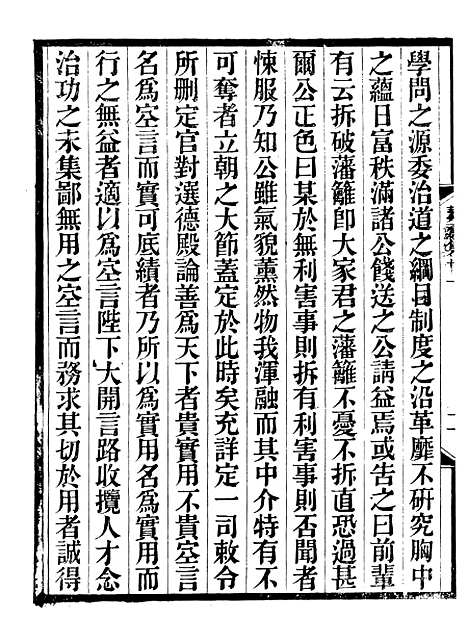 學問之源委治道之綱目制度之沿革靡不研究胸中
之蘊日富秩滿諸公餞送之公請益焉或告之曰前輩
有云拆破藩籬卽大家君之藩籬不憂不拆直恐過甚
爾公正色曰某於無利害事則拆有利害事則否聞者
悚服乃知公雖氣貌薰然物我渾融而其中介特有不
可奪者立朝之大節蓋定於此時矣充詳定一司敕令
所刪定官對選德殿論善爲天下者貴實用不貴空言
名爲空言而實可底績者乃所以爲實用名爲實用而
行之無益者適以爲空言陛下大開言路收攬人才念
治功之未集鄙無用之空言而務求其切於用者誠得